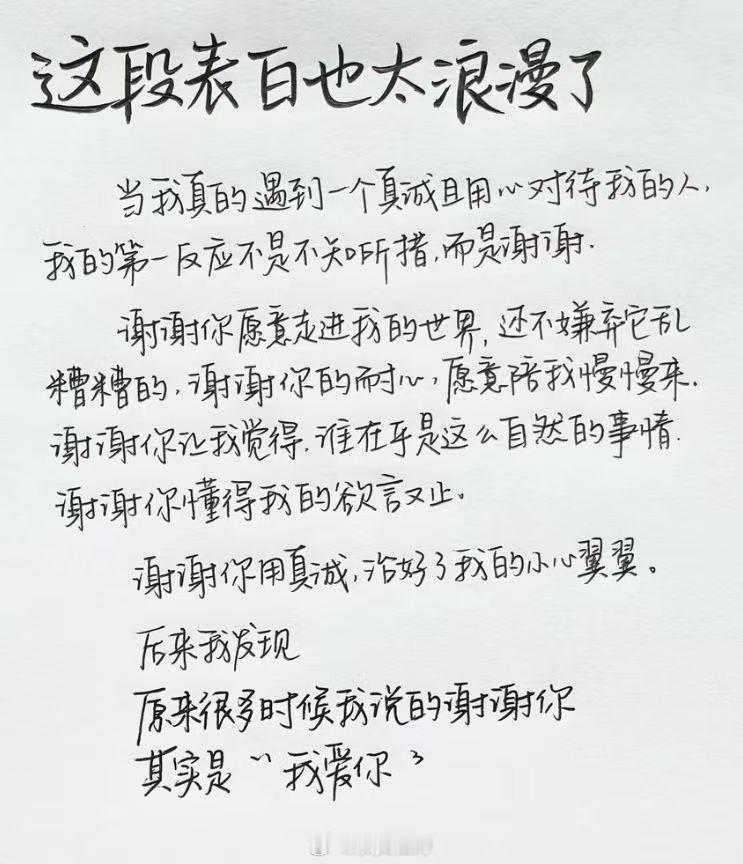 这段表白也太浪漫了
当我真的遇到一个真诚且用心对待我的人,
我的第一反应不是不知所措,而是谢谢.
谢谢你愿意走进我的世界,还不嫌弃它乱
糟糟的,谢谢你的耐心,愿意陪我慢慢来.
谢谢你让我觉得.谁在乎是这么自然的事情.
谢谢你懂得我的欲言又止。
谢谢你用真诚,治好了我的小心翼翼。
后来我发现
原来很多时候我说的谢谢你
其实是“我爱你”